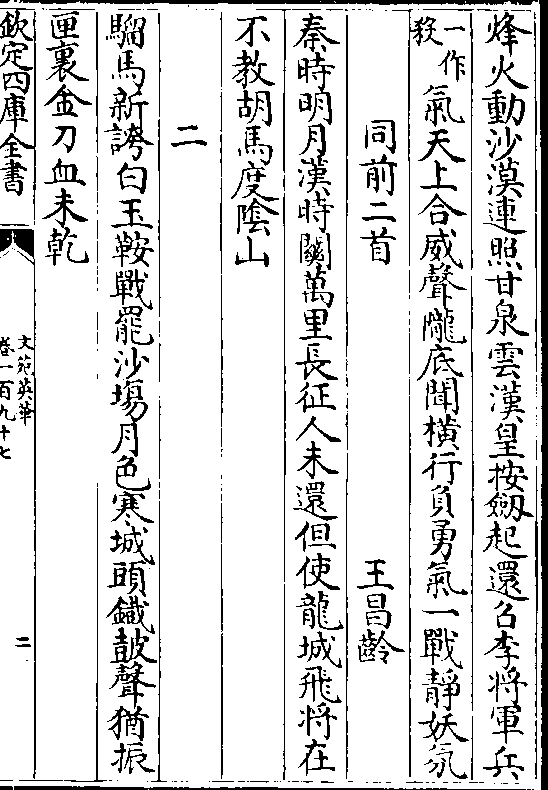 烽火動沙漠連照甘泉雲漢皇按劒起還召李將軍兵
一作殺
氣天上合威聲隴底聞橫行負勇氣一戰靜妖氛
同前二首 王昌齡
秦時明月漢時關萬里長征人未還但使龍城飛将在
不教胡馬度陰山
二
騮馬新誇白玉鞍戰罷沙塲月色寒城頭鐵鼓聲猶振
匣裏金刀血未乾
欽定四庫全書
文苑英華
卷一百九十七
二